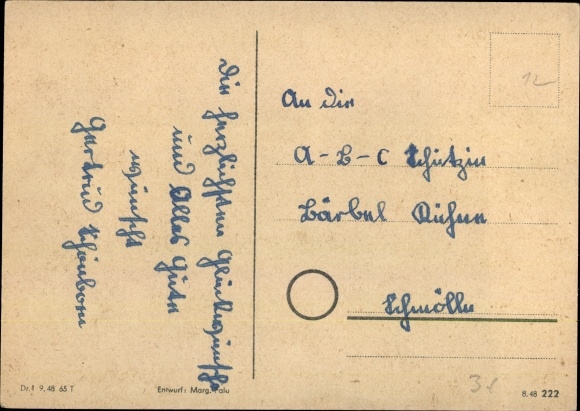 Die herzlichsten Glückwünsche
und Alles Gute
wünscht
Gertrud Schönborn
An die
A-B-C Schützin
Bärbel Kühne
Schmölln
12
Dr. 9, 48 65 T
Entwurf: Marg. Palu
8.48 222